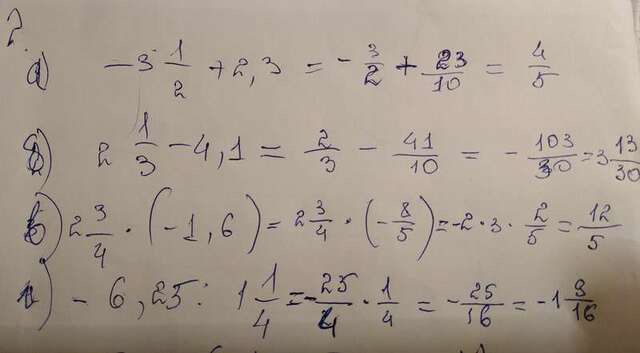 2.
а) -3 1/2 + 2,3 = - 3/2 + 23/10 = 4/5
б) 2 1/3 - 4,1 = 2/3 - 41/10 = - 103/30 = 3 13/30
в) 2 3/4 · (-1,6) = 2 3/4 · (- 8/5) = -2 · 3 · 2/5 = 12/5
г) - 6,25 : 1 1/4 = - 25/4 · 1/4 = - 25/16 = -1 9/16